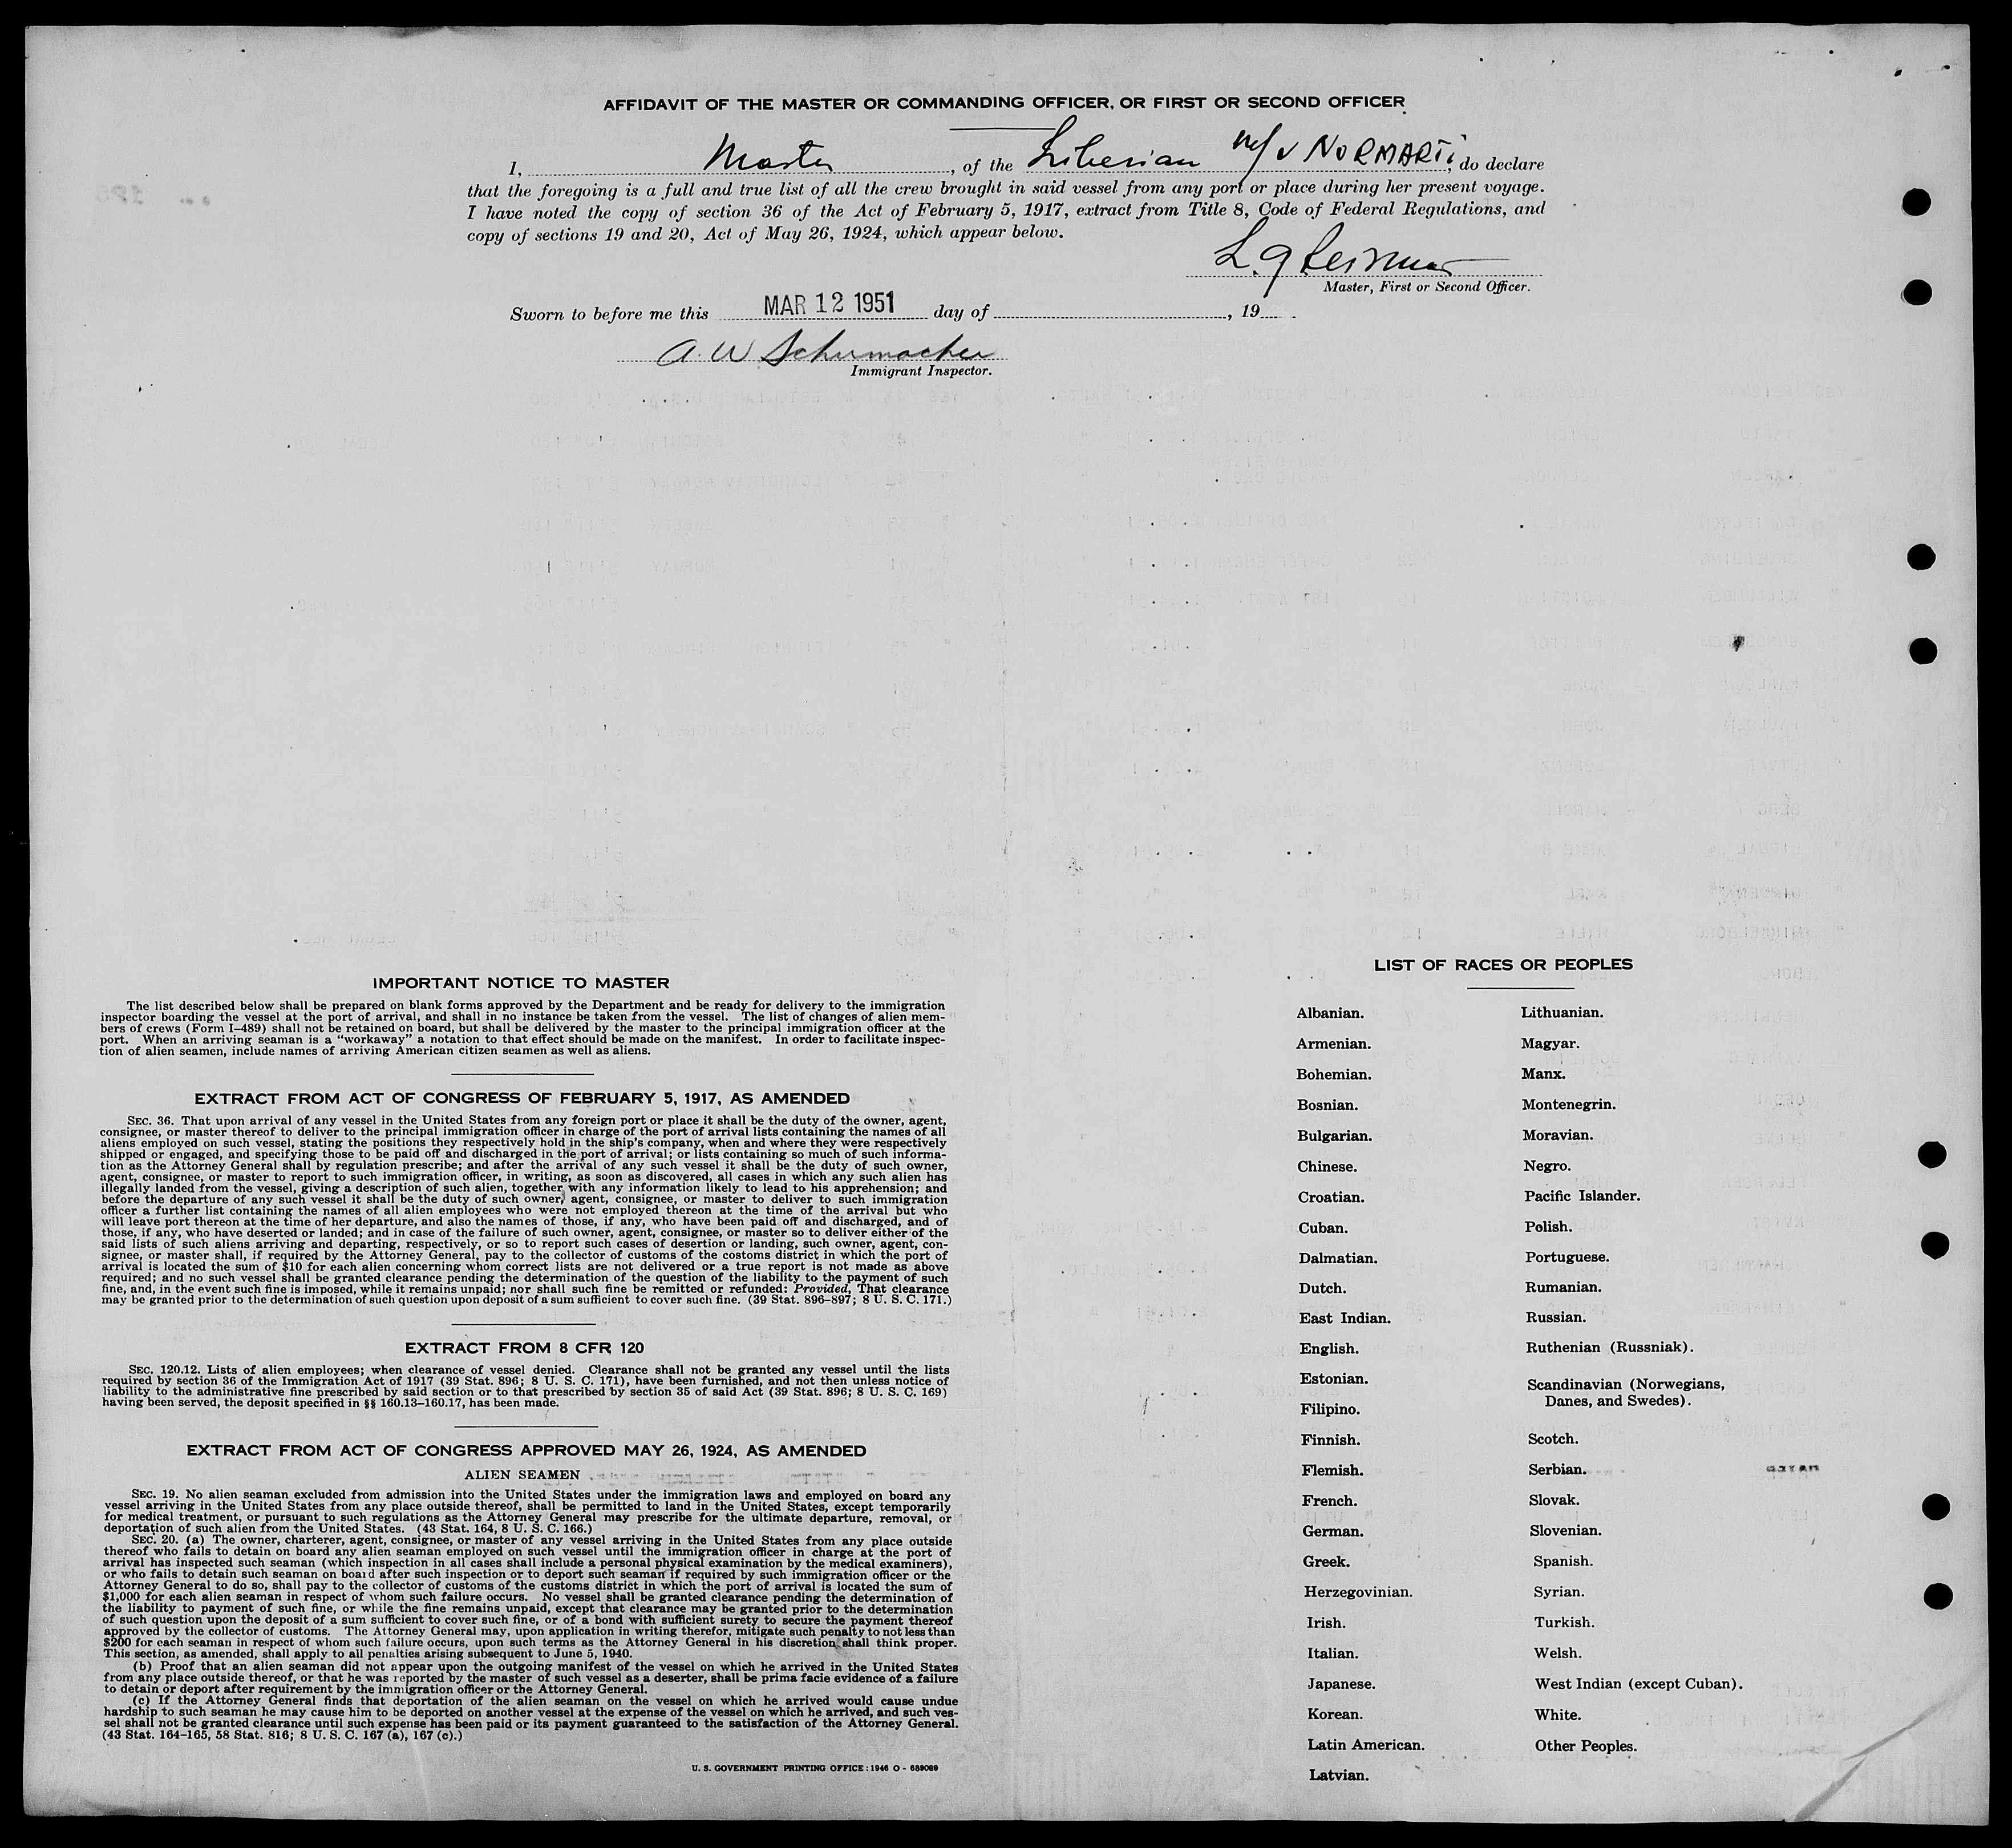 AFFIDAVIT OF THE MASTER OR COMMANDING OFFICER, OR FIRST OR SECOND OFFICER
I, Master, of the Liberian m/v NORMARTi, do declare
that the foregoing is a full and true list of all the crew brought in said vessel from any port or place during her present voyage.
I have noted the copy of section 36 of the Act of February 5, 1917, extract from Title 8, Code of Federal Regulations, and
copy of sections 19 and 20, Act of May 26, 1924, which appear below.
Master, First or Second Officer.
Sworn to before me this MAR 12 1951 day of , 19
A. W Schumacher
Immigrant Inspector.
IMPORTANT NOTICE TO MASTER
The list described below shall be prepared on blank forms approved by the Department and be ready for delivery to the immigration
inspector boarding the vessel at the port of arrival, and shall in no instance be taken from the vessel. The list of changes of alien mem-
bers of crews (Form I–489) shall not be retained on board, but shall be delivered by the master to the principal immigration officer at the
port. When an arriving seaman is a "workaway" a notation to that effect should be made on the manifest. In order to facilitate inspec-
tion of alien seamen, include names of arriving American citizen seamen as well as aliens.
EXTRACT FROM ACT OF CONGRESS OF FEBRUARY 5, 1917, AS AMENDED
SEC. 36. That upon arrival of any vessel in the United States from any foreign port or place it shall be the duty of the owner, agent,
consignee, or master thereof to deliver to the principal immigration officer in charge of the port of arrival lists containing the names of all
aliens employed on such vessel, stating the positions they respectively hold in the ship's company, when and where they were respectively
shipped or engaged, and specifying those to be paid off and discharged in the port of arrival; or lists containing so much of such informa-
tion as the Attorney General shall by regulation prescribe; and after the arrival of any such vessel it shall be the duty of such owner,
agent, consignee, or master to report to such immigration officer, in writing, as soon as discovered, all cases in which any such alien has
illegally landed from the vessel, giving a description of such alien, together with any information likely to lead to his apprehension; and
before the departure of any such vessel it shall be the duty of such owner, agent, consignee, or master to deliver to such immigration
officer a further list containing the names of all alien employees who were not employed thereon at the time of the arrival but who
will leave port thereon at the time of her departure, and also the names of those, if any, who have been paid off and discharged, and of
those, if any, who have deserted or landed; and in case of the failure of such owner, agent, consignee, or master so to deliver either of the
said lists of such aliens arriving and departing, respectively, or so to report such cases of desertion or landing, such owner, agent, con-
signee, or master shall, if required by the Attorney General, pay to the collector of customs of the costoms district in which the port of
arrival is located the sum of $10 for each alien concerning whom correct lists are not delivered or a true report is not made as above
required; and no such vessel shall be granted clearance pending the determination of the question of the liability to the payment of such
fine, and, in the event such fine is imposed, while it remains unpaid; nor shall such fine be remitted or refunded: Provided, That clearance
may be granted prior to the determination of such question upon deposit of a sum sufficient to cover such fine. (39 Stat. 896–897; 8 U. S. C. 171.)
EXTRACT FROM 8 CFR 120
SEC. 120.12. Lists of alien employees; when clearance of vessel denied. Clearance shall not be granted any vessel until the lists
required by section 36 of the Immigration Act of 1917 (39 Stat. 896; 8 U. S. C. 171), have been furnished, and not then unless notice of
liability to the administrative fine prescribed by said section or to that prescribed by section 35 of said Act (39 Stat. 896; 8 U. S. C. 169)
having been served, the deposit specified in §§ 160.13–160.17, has been made.
EXTRACT FROM ACT OF CONGRESS APPROVED MAY 26, 1924, AS AMENDED
ALIEN SEAMEN
SEC. 19. No alien seaman excluded from admission into the United States under the immigration laws and employed on board any
vessel arriving in the United States from any place outside thereof, shall be permitted to land in the United States, except temporarily
for medical treatment, or pursuant to such regulations as the Attorney General may prescribe for the ultimate departure, removal, or
deportation of such alien from the United States. (43 Stat. 164, 8 U. S. C. 166.)
SEC. 20. (a) The owner, charterer, agent, consignee, or master of any vessel arriving in the United States from any place outside
thereof who fails to detain on board any alien seaman employed on such vessel until the immigration officer in charge at the port of
arrival has inspected such seaman (which inspection in all cases shall include a personal physical examination by the medical examiners),
or who fails to detain such seaman on board after such inspection or to deport such seaman if required by such immigration officer or the
Attorney General to do so, shall pay to the collector of customs of the customs district in which the port of arrival is located the sum of
$1,000 for each alien seaman in respect of whom such failure occurs. No vessel shall be granted clearance pending the determination of
the liability to payment of such fine, or while the fine remains unpaid, except that clearance may be granted prior to the determination
of such question upon the deposit of a sum sufficient to cover such fine, or of a bond with sufficient surety to secure the payment thereof
approved by the collector of customs. The Attorney General may, upon application in writing therefor, mitigate such penalty to not less than
$200 for each seaman in respect of whom such failure occurs, upon such terms as the Attorney General in his discretion shall think proper.
This section, as amended, shall apply to all penalties arising subsequent to June 5, 1940.
(b) Proof that an alien seaman did not appear upon the outgoing manifest of the vessel on which he arrived in the United States
from any place outside thereof, or that he was reported by the master of such vessel as a deserter, shall be prima facie evidence of a failure
to detain or deport after requirement by the immigration officer or the Attorney General.
(c) If the Attorney General finds that deportation of the alien seaman on the vessel on which he arrived would cause undue
hardship to such seaman he may cause him to be deported on another vessel at the expense of the vessel on which he arrived, and such ves-
sel shall not be granted clearance until such expense has been paid or its payment guaranteed to the satisfaction of the Attorney General.
(43 Stat. 164–165, 58 Stat. 816; 8 U. S. C. 167 (a), 167 (c).)
U. S. GOVERNMENT PRINTING OFFICE : 1946 O - 689089
LIST OF RACES OR PEOPLES
Albanian.
Armenian.
Bohemian.
Bosnian.
Bulgarian.
Chinese.
Croatian.
Cuban.
Dalmatian.
Dutch.
East Indian.
English.
Estonian.
Filipino.
Finnish.
Flemish.
French.
German.
Greek.
Herzegovinian.
Irish.
Italian.
Japanese.
Korean.
Latin American.
Latvian.
Lithuanian.
Magyar.
Manx.
Montenegrin.
Moravian.
Negro.
Pacific Islander.
Polish.
Portuguese.
Rumanian.
Russian.
Ruthenian (Russniak).
Scandinavian (Norwegians,
Danes, and Swedes).
Scotch.
Serbian.
Slovak.
Slovenian.
Spanish.
Syrian.
Turkish.
Welsh.
West Indian (except Cuban).
White.
Other Peoples.